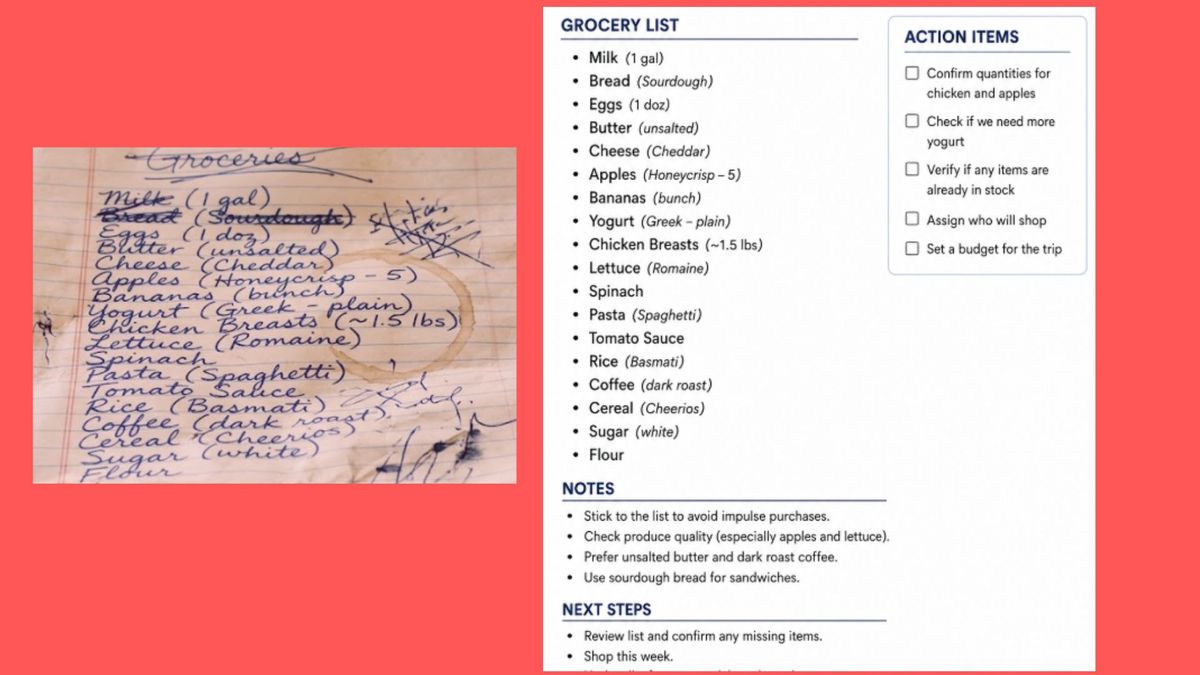 Groceries
Milk (1 gal)
Bread (Sourdough)
Eggs (1 doz)
Butter (unsalted)
Cheese (Cheddar)
Apples (Honeycrisp - 5)
Bananas (bunch)
Yogurt (Greek - plain)
Chicken Breasts (~1.5 lbs)
Lettuce (Romaine)
Spinach
Pasta (Spaghetti)
Tomato Sauce
Rice (Basmati)
Coffee (dark roast)
Cereal (Cheerios)
Sugar (white)
Flour
GROCERY LIST
• Milk (1 gal)
• Bread (Sourdough)
• Eggs (1 doz)
• Butter (unsalted)
• Cheese (Cheddar)
• Apples (Honeycrisp – 5)
• Bananas (bunch)
• Yogurt (Greek – plain)
• Chicken Breasts (~1.5 lbs)
• Lettuce (Romaine)
• Spinach
• Pasta (Spaghetti)
• Tomato Sauce
• Rice (Basmati)
• Coffee (dark roast)
• Cereal (Cheerios)
• Sugar (white)
• Flour
NOTES
• Stick to the list to avoid impulse purchases.
• Check produce quality (especially apples and lettuce).
• Prefer unsalted butter and dark roast coffee.
• Use sourdough bread for sandwiches.
NEXT STEPS
• Review list and confirm any missing items.
• Shop this week.
ACTION ITEMS
Confirm quantities for
chicken and apples
Check if we need more
yogurt
Verify if any items are
already in stock
Assign who will shop
Set a budget for the trip